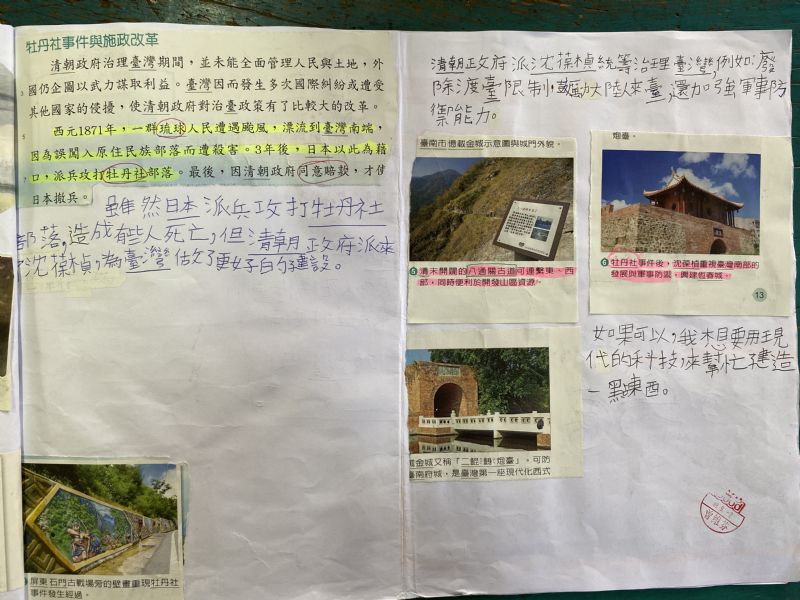 牡丹社事件與施政改革
清朝政府治理臺灣期間，並未能全面管理人民與土地，外
國仍企圖以武力謀取利益。臺灣因而發生多次國際糾紛或遭受
其他國家的侵擾，使清朝政府對治臺政策有了比較大的改革。
西元1871年，一群琉球人民遭遇颱風，漂流到臺灣南端，
因為誤闖入原住民族部落而遭殺害。3年後，日本以此為藉
口，派兵攻打牡丹社部落。最後，因清朝政府同意賠款，才使
日本撤兵。
雖然日本派兵攻打牡丹社
部落，造成有些人死亡，但清朝政府派來
沈葆楨，為臺灣做了更好的建設。
屏東石門古戰場旁的壁畫重現牡丹社
事件發生經過。
清朝政府派沈葆楨統等治理臺灣，例如：廢
除渡臺限制、鼓勵大陸來臺，還加強軍事防
禦能力。
臺南市億載金城示意圖與城門外貌。
5 清末開闢的八通關古道可連繫東、西
部，同時便利於開發山區資源。
炮臺。
6 牡丹社事件後，沈葆楨重視臺灣南部的
發展與軍事防禦，興建恆春城。
13
如果可以，我想要用現
代的科技，來幫忙建造
一點東西。
金城又稱「二鯤鯓炮臺」。可防
臺南府城，是臺灣第一座現代化西式